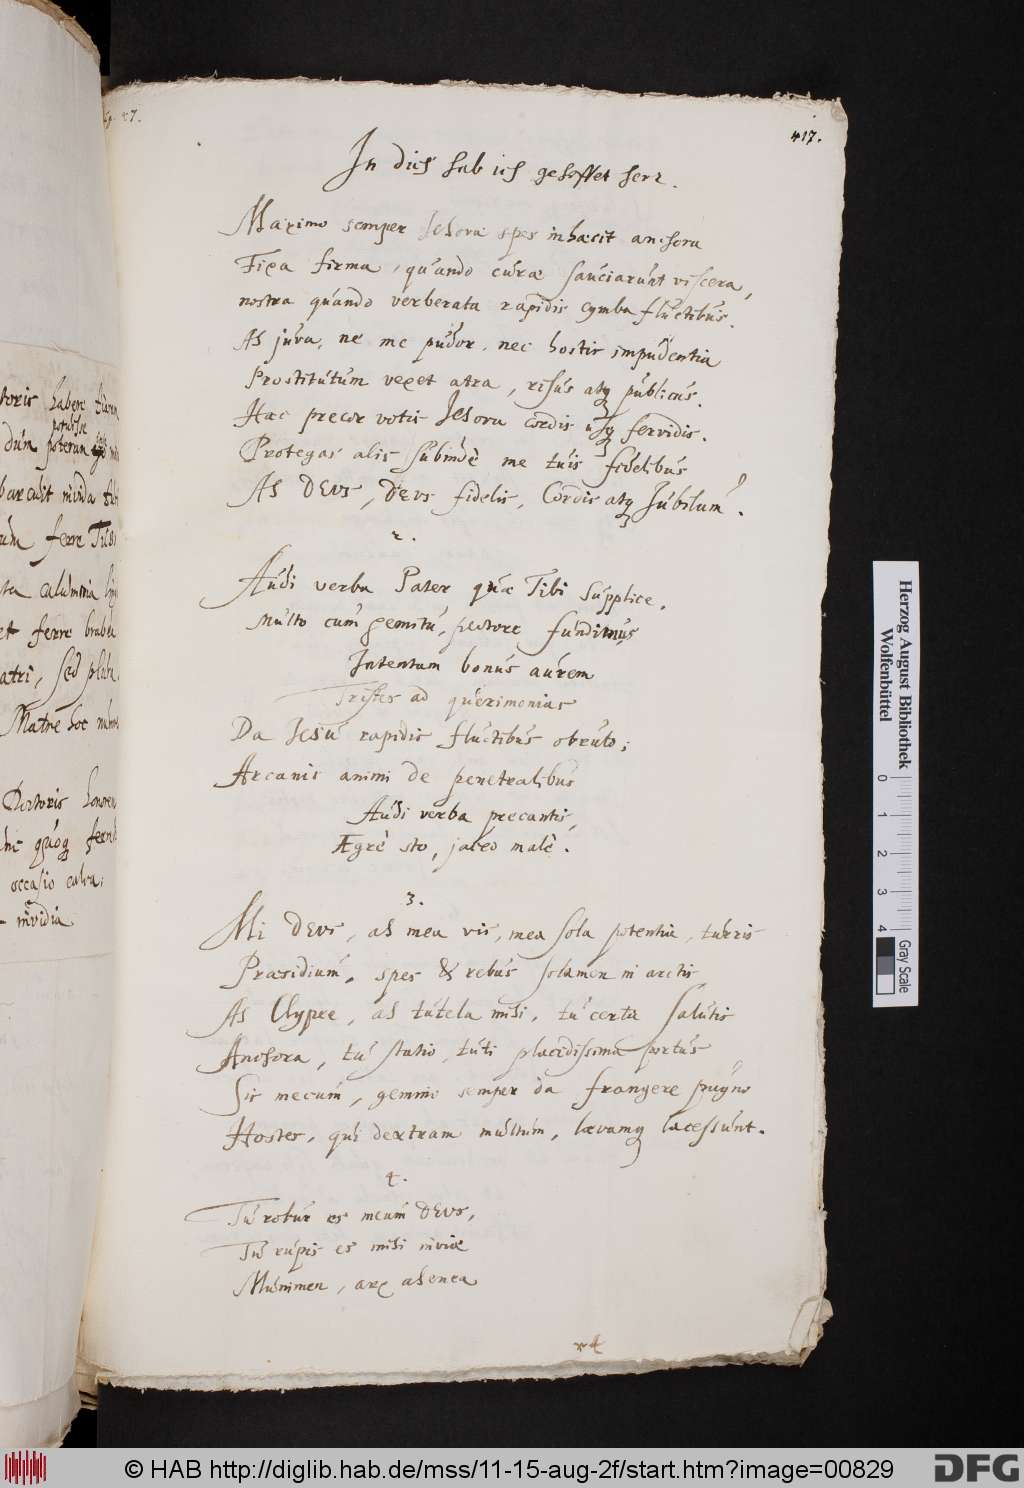 27.
417.
In dich hab ich gehoffet herr.
Maximo semper Jehovæ spes inhæcit anchora
Fixa firma, quando curæ sauciarunt viscera,
nostra quando verberata rapidis cymba fluctibus.
Ah juva, ne me pudor, nec hostis impudentia
Prostitutum vexet atra, risus atq publicus.
Hæc precor votis Jehova cordis usq fervidis.
Protegas alis subindè me tuis fidelibus
Ah DEUS, DEUS fidelis, Cordis atq Jubilum.
2.
Audi verba Pater quæ Tibi supplice,
Multo cum gemitu, pectore fundimus
Intentam bonus aurem
Tristes ad querimonias
Da Jesu rapidis fluctibus obruto;
Arcanis animi de penetralibus
Audi verba precantis,
Ægrè sto, jaceo malè.
3.
Mi DEUS, ah mea vis, mea sola potentia, turris
Præsidium, spes & rebus solamen in arctis
Ah Clypee, ah tutela mihi, tu certa salutis
Anchora, tu statio, tuti placidissima portus
Sis mecum, gemino semper da frangere pugno
Hostes, qui dextram multum, lævamq lacessunt.
4.
Tu robur es meum DEUS,
Tu rupis es mihi inviæ
Munimen, arx ahenea
toris habere
potuisse
dum poteram
barcait invida
ferre
calumnia
et ferre
atri, sed
Matre hoc
Doctoris honorem
hic quoq
occasio calva;
invidia
Herzog August Bibliothek
Wolfenbüttel
0 1 2 3 4
Gray Scale
© HAB http://diglib.hab.de/mss/11-15-aug-2f/start.htm?image=00829
DFG